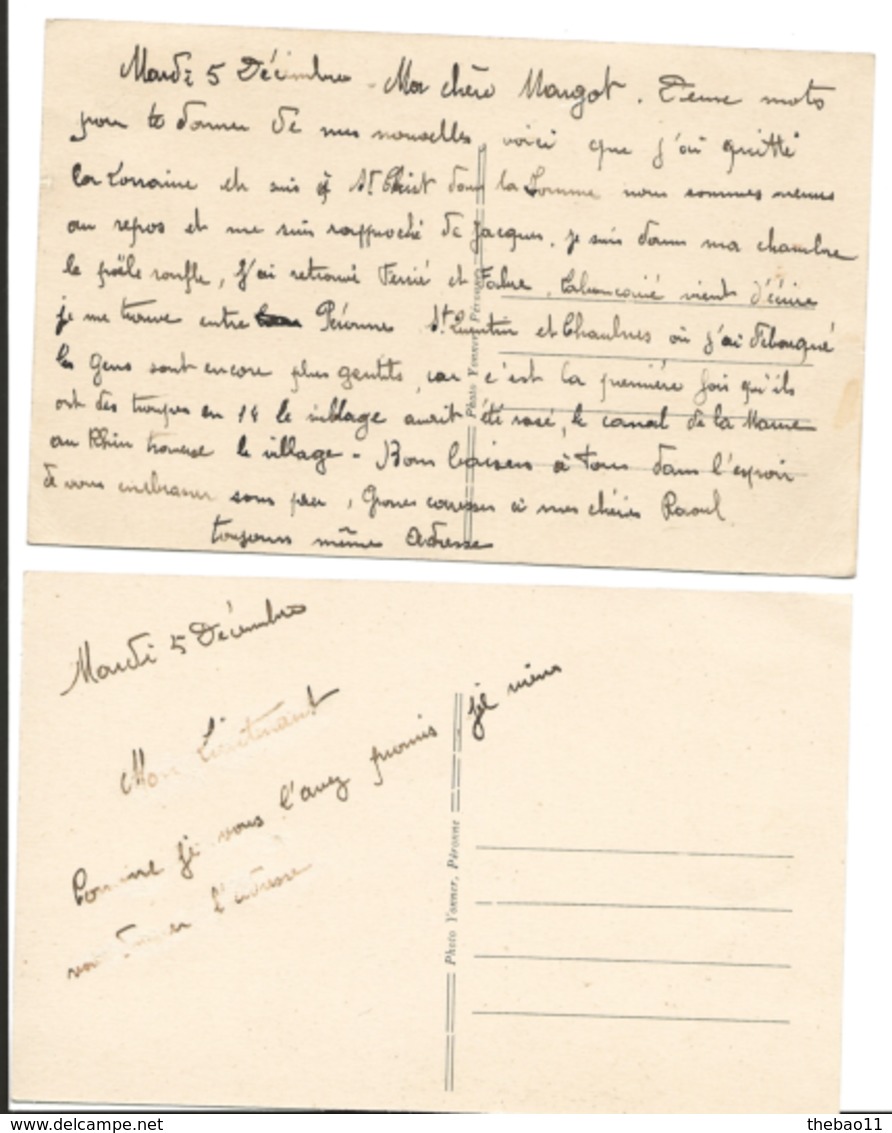 Mardi 5 Décembre - Ma chère Margot. Deux mots
pour te donner de mes nouvelles, voici que j'ai quitté
la Lorraine et suis à St Christ dans la Somme nous sommes venus
au repos et me suis rapproché de Jacques. je suis dans ma chambre
le poële ronfle, j'ai retrouvé et Fabre, vient d'écrire
je me trouve entre Péronne St Quentin et Chaulnes où j'ai débarqué
les gens sont encore plus gentils, car c'est la première fois qu'ils
ont des troupes en 14 le village aurait été rasé, le canal de la Marne
au Rhin traverse le village - Bons baisers à tous dans l'espoir
de vous embrasser sous peu, Grosses caresses à mes chéries Raoul
toujours même adresse
Photo Yonner, Péronne
Mardi 5 Décembre
Mon Lieutenant
Comme je vous l'avez promis je viens
vous donner l'adresse
Photo Yonner, Péronne
thebao11